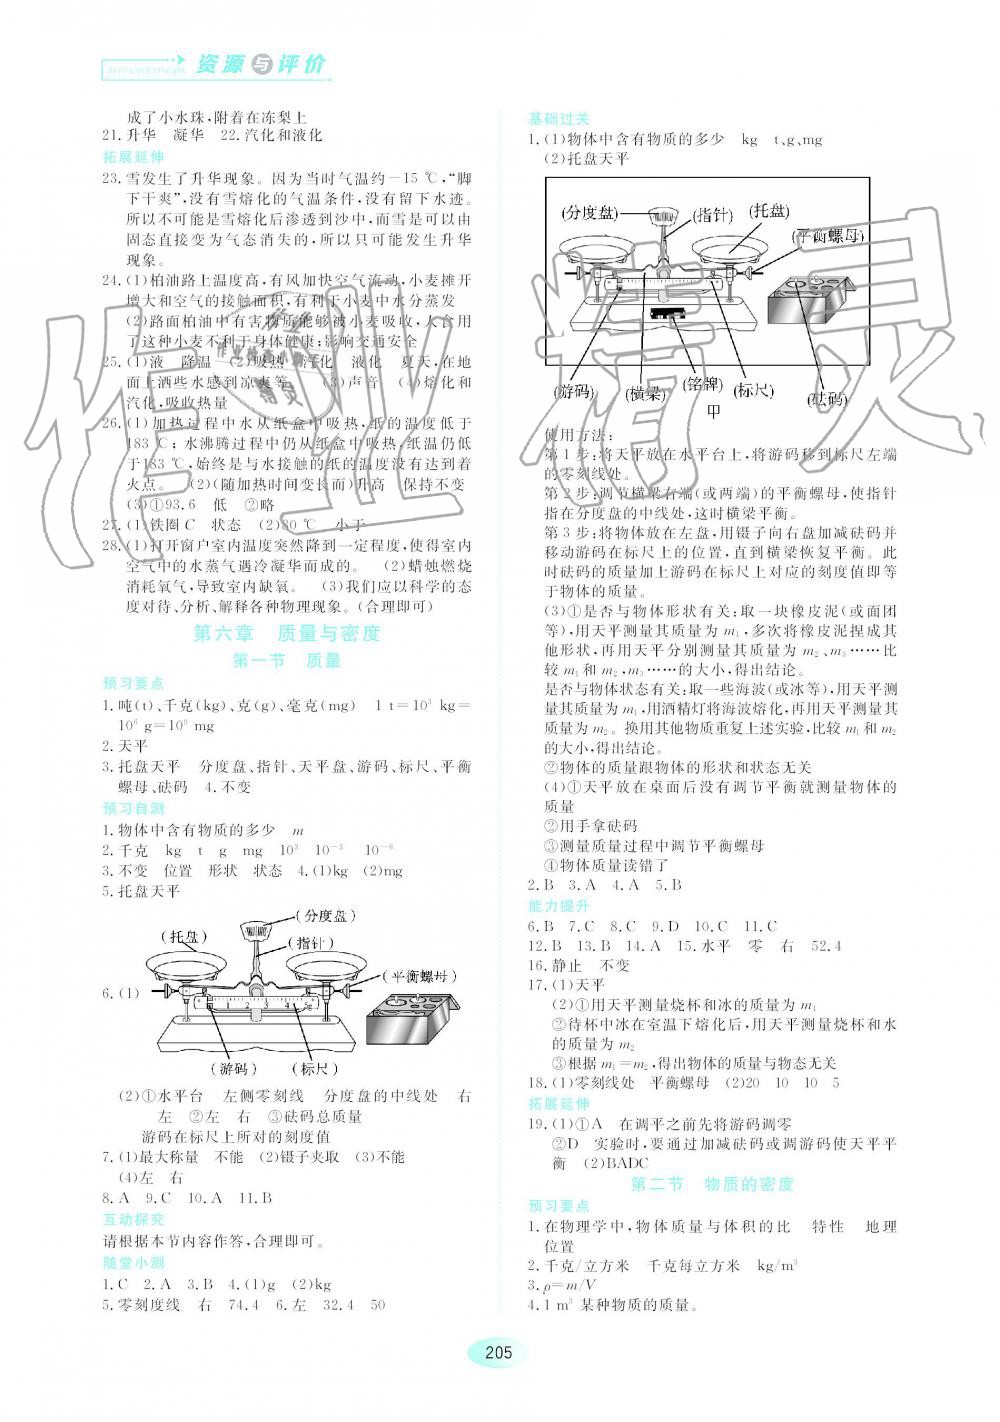 资源与评价
ZIYUANYUPINGJIA
成了小水珠,附着在冻梨上
21.升华 凝华 22.汽化和液化
拓展延伸
23.雪发生了升华现象。因为当时气温约-15 ℃,“脚
下干爽”,没有雪熔化的气温条件,没有留下水迹。
所以不可能是雪熔化后渗透到沙中,而雪是可以由
固态直接变为气态消失的,所以只可能发生升华
现象。
24.(1)柏油路上温度高,有风加快空气流动,小麦摊开
增大和空气的接触面积,有利于小麦中水分蒸发
(2)路面柏油中有害物质能够被小麦吸收,人食用
了这种小麦不利于身体健康;影响交通安全
25.(1)液 降温 (2)吸热 汽化 液化 夏天,在地
面上洒些水感到凉爽等。 (3)声音 (4)熔化和
汽化,吸收热量
26.(1)加热过程中水从纸盒中吸热,纸的温度低于
183 ℃;水沸腾过程中仍从纸盒中吸热,纸温仍低
于183 ℃,始终是与水接触的纸的温度没有达到着
火点。 (2)(随加热时间变长而)升高 保持不变
(3)①93.6 低 ②略
27.(1)铁圈C 状态 (2)80 ℃ 小于
28.(1)打开窗户室内温度突然降到一定程度,使得室内
空气中的水蒸气遇冷凝华而成的。 (2)蜡烛燃烧
消耗氧气,导致室内缺氧。 (3)我们应以科学的态
度对待、分析、解释各种物理现象。(合理即可)
第六章 质量与密度
第一节 质量
预习要点
1.吨(t)、千克(kg)、克(g)、毫克(mg) 1 t=10³ kg=
10⁶ g=10⁹ mg
2.天平
3.托盘天平 分度盘、指针、天平盘、游码、标尺、平衡
螺母、砝码 4.不变
预习自测
1.物体中含有物质的多少 m
2.千克 kg t g mg 10³ 10⁻³ 10⁻⁶
3.不变 位置 形状 状态 4.(1)kg (2)mg
5.托盘天平
(分度盘)
(托盘)
(指针)
(平衡螺母)
6.(1)
(游码) (标尺)
(2)①水平台 左侧零刻线 分度盘的中线处 右
左 ②左 右 ③砝码总质量
游码在标尺上所对的刻度值
7.(1)最大称量 不能 (2)镊子夹取 (3)不能
(4)左 右
8.A 9.C 10.A 11.B
互动探究
请根据本节内容作答,合理即可。
随堂小测
1.C 2.A 3.B 4.(1)g (2)kg
5.零刻度线 右 74.4 6.左 32.4 50
基础过关
1.(1)物体中含有物质的多少 kg t、g、mg
(2)托盘天平
(分度盘) (指针) (托盘)
(平衡螺母)
(游码) (横梁) (铭牌) (标尺) (砝码)
甲
使用方法:
第1步:将天平放在水平台上,将游码移到标尺左端
的零刻线处。
第2步:调节横梁右端(或两端)的平衡螺母,使指针
指在分度盘的中线处,这时横梁平衡。
第3步:将物体放在左盘,用镊子向右盘加减砝码并
移动游码在标尺上的位置,直到横梁恢复平衡。此
时砝码的质量加上游码在标尺上对应的刻度值即等
于物体的质量。
(3)①是否与物体形状有关:取一块橡皮泥(或面团
等),用天平测量其质量为 m₁,多次将橡皮泥捏成其
他形状,再用天平分别测量其质量为 m₂、m₃……比
较 m₁ 和 m₂,m₃……的大小,得出结论。
是否与物体状态有关:取一些海波(或冰等),用天平测
量其质量为 m₁,用酒精灯将海波熔化,再用天平测量其
质量为 m₂。换用其他物质重复上述实验,比较 m₁ 和 m₂
的大小,得出结论。
②物体的质量跟物体的形状和状态无关
(4)①天平放在桌面后没有调节平衡就测量物体的
质量
②用手拿砝码
③测量质量过程中调节平衡螺母
④物体质量读错了
2.B 3.A 4.A 5.B
能力提升
6.B 7.C 8.C 9.D 10.C 11.C
12.B 13.B 14.A 15.水平 零 右 52.4
16.静止 不变
17.(1)天平
(2)①用天平测量烧杯和冰的质量为 m₁
②待杯中冰在室温下熔化后,用天平测量烧杯和水
的质量为 m₂
③根据 m₁=m₂,得出物体的质量与物态无关
18.(1)零刻线处 平衡螺母 (2)20 10 10 5
拓展延伸
19.(1)①A 在调平之前先将游码调零
②D 实验时,要通过加减砝码或调游码使天平平
衡 (2)BADC
第二节 物质的密度
预习要点
1.在物理学中,物体质量与体积的比 特性 地理
位置
2.千克/立方米 千克每立方米 kg/m³
3.ρ=m/V
4.1 m³ 某种物质的质量。
205
作业精灵